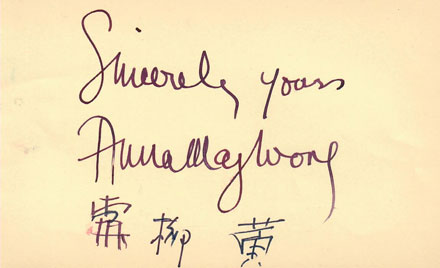 Sincerely yours
Anna May Wong
霜 柳 黄